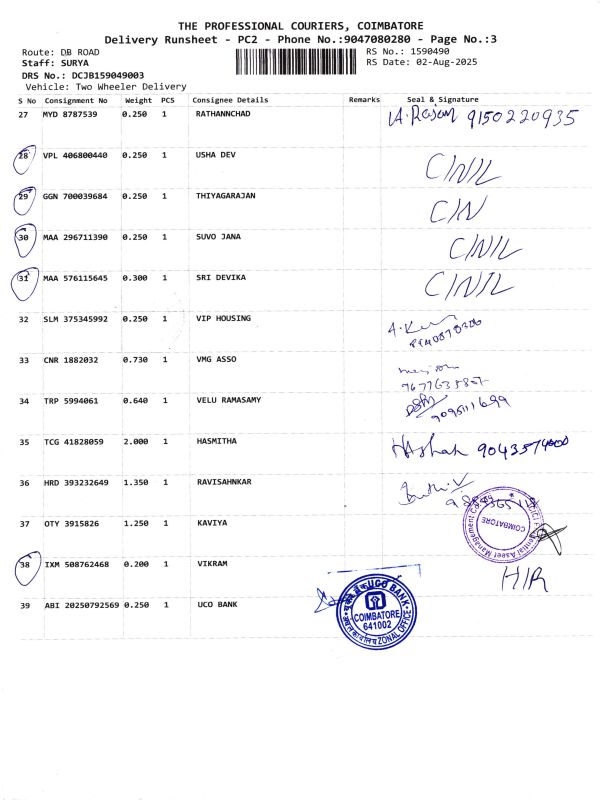 THE PROFESSIONAL COURIERS, COIMBATORE
Delivery Runsheet - PC2 - Phone No.:9047080280 - Page No.:3
Route: DB ROAD
RS No.: 1590490
Staff: SURYA
RS Date: 02-Aug-2025
DRS No.: DCJB159049003
Vehicle: Two Wheeler Delivery
S No Consignment No Weight PCS Consignee Details Remarks Seal & Signature
27 MYD 8787539 0.250 1 RATHANNCHAD A. Rajan 9150220935
28 VPL 406800440 0.250 1 USHA DEV C/N/L
29 GGN 700039684 0.250 1 THIYAGARAJAN C/N
30 MAA 296711390 0.250 1 SUVO JANA C/N/L
31 MAA 576115645 0.300 1 SRI DEVIKA C/N/L
32 SLM 375345992 0.250 1 VIP HOUSING
33 CNR 1882032 0.730 1 VMG ASSO
34 TRP 5994061 0.640 1 VELU RAMASAMY
9095111699
35 TCG 41828059 2.000 1 HASMITHA
36 HRD 393232649 1.350 1 RAVISAHNKAR
37 OTY 3915826 1.250 1 KAVIYA
COIMBATORE
38 IXM 508762468 0.200 1 VIKRAM H/R
39 ABI 20250792569 0.250 1 UCO BANK
UCO BANK
COIMBATORE
641002
ZONAL OFFICE